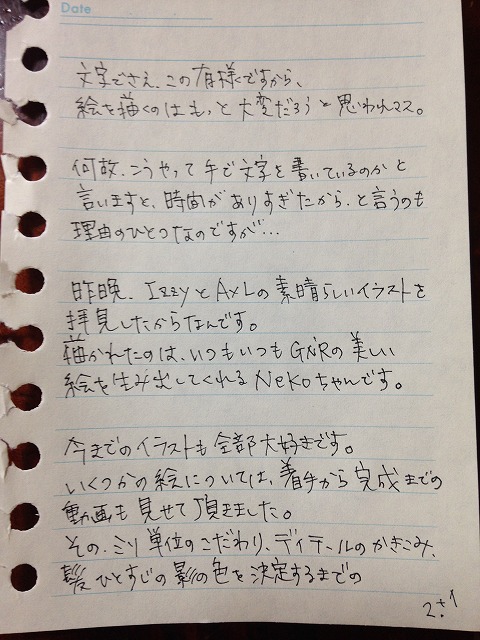 Date
文字でさえ、この有様ですから、
絵を描くのはもっと大変だろうと思われマス。
何故、こうやって手で文字を書いているのかと
言いますと、時間がありすぎたから、と言うのも
理由のひとつなのですが…
昨晩、IzzyとAxLの素晴らしいイラストを
拝見したからなんです。
描かれたのは、いつもいつもGN'Rの美しい
絵を生み出してくれるNekoちゃんです。
今までのイラストも全部大好きです。
いくつかの絵については、着手から完成までの
動画も見せて頂きました。
その、ミリ単位のこだわり、ディテールのかきこみ、
髪ひとすじの影の色を決定するまでの